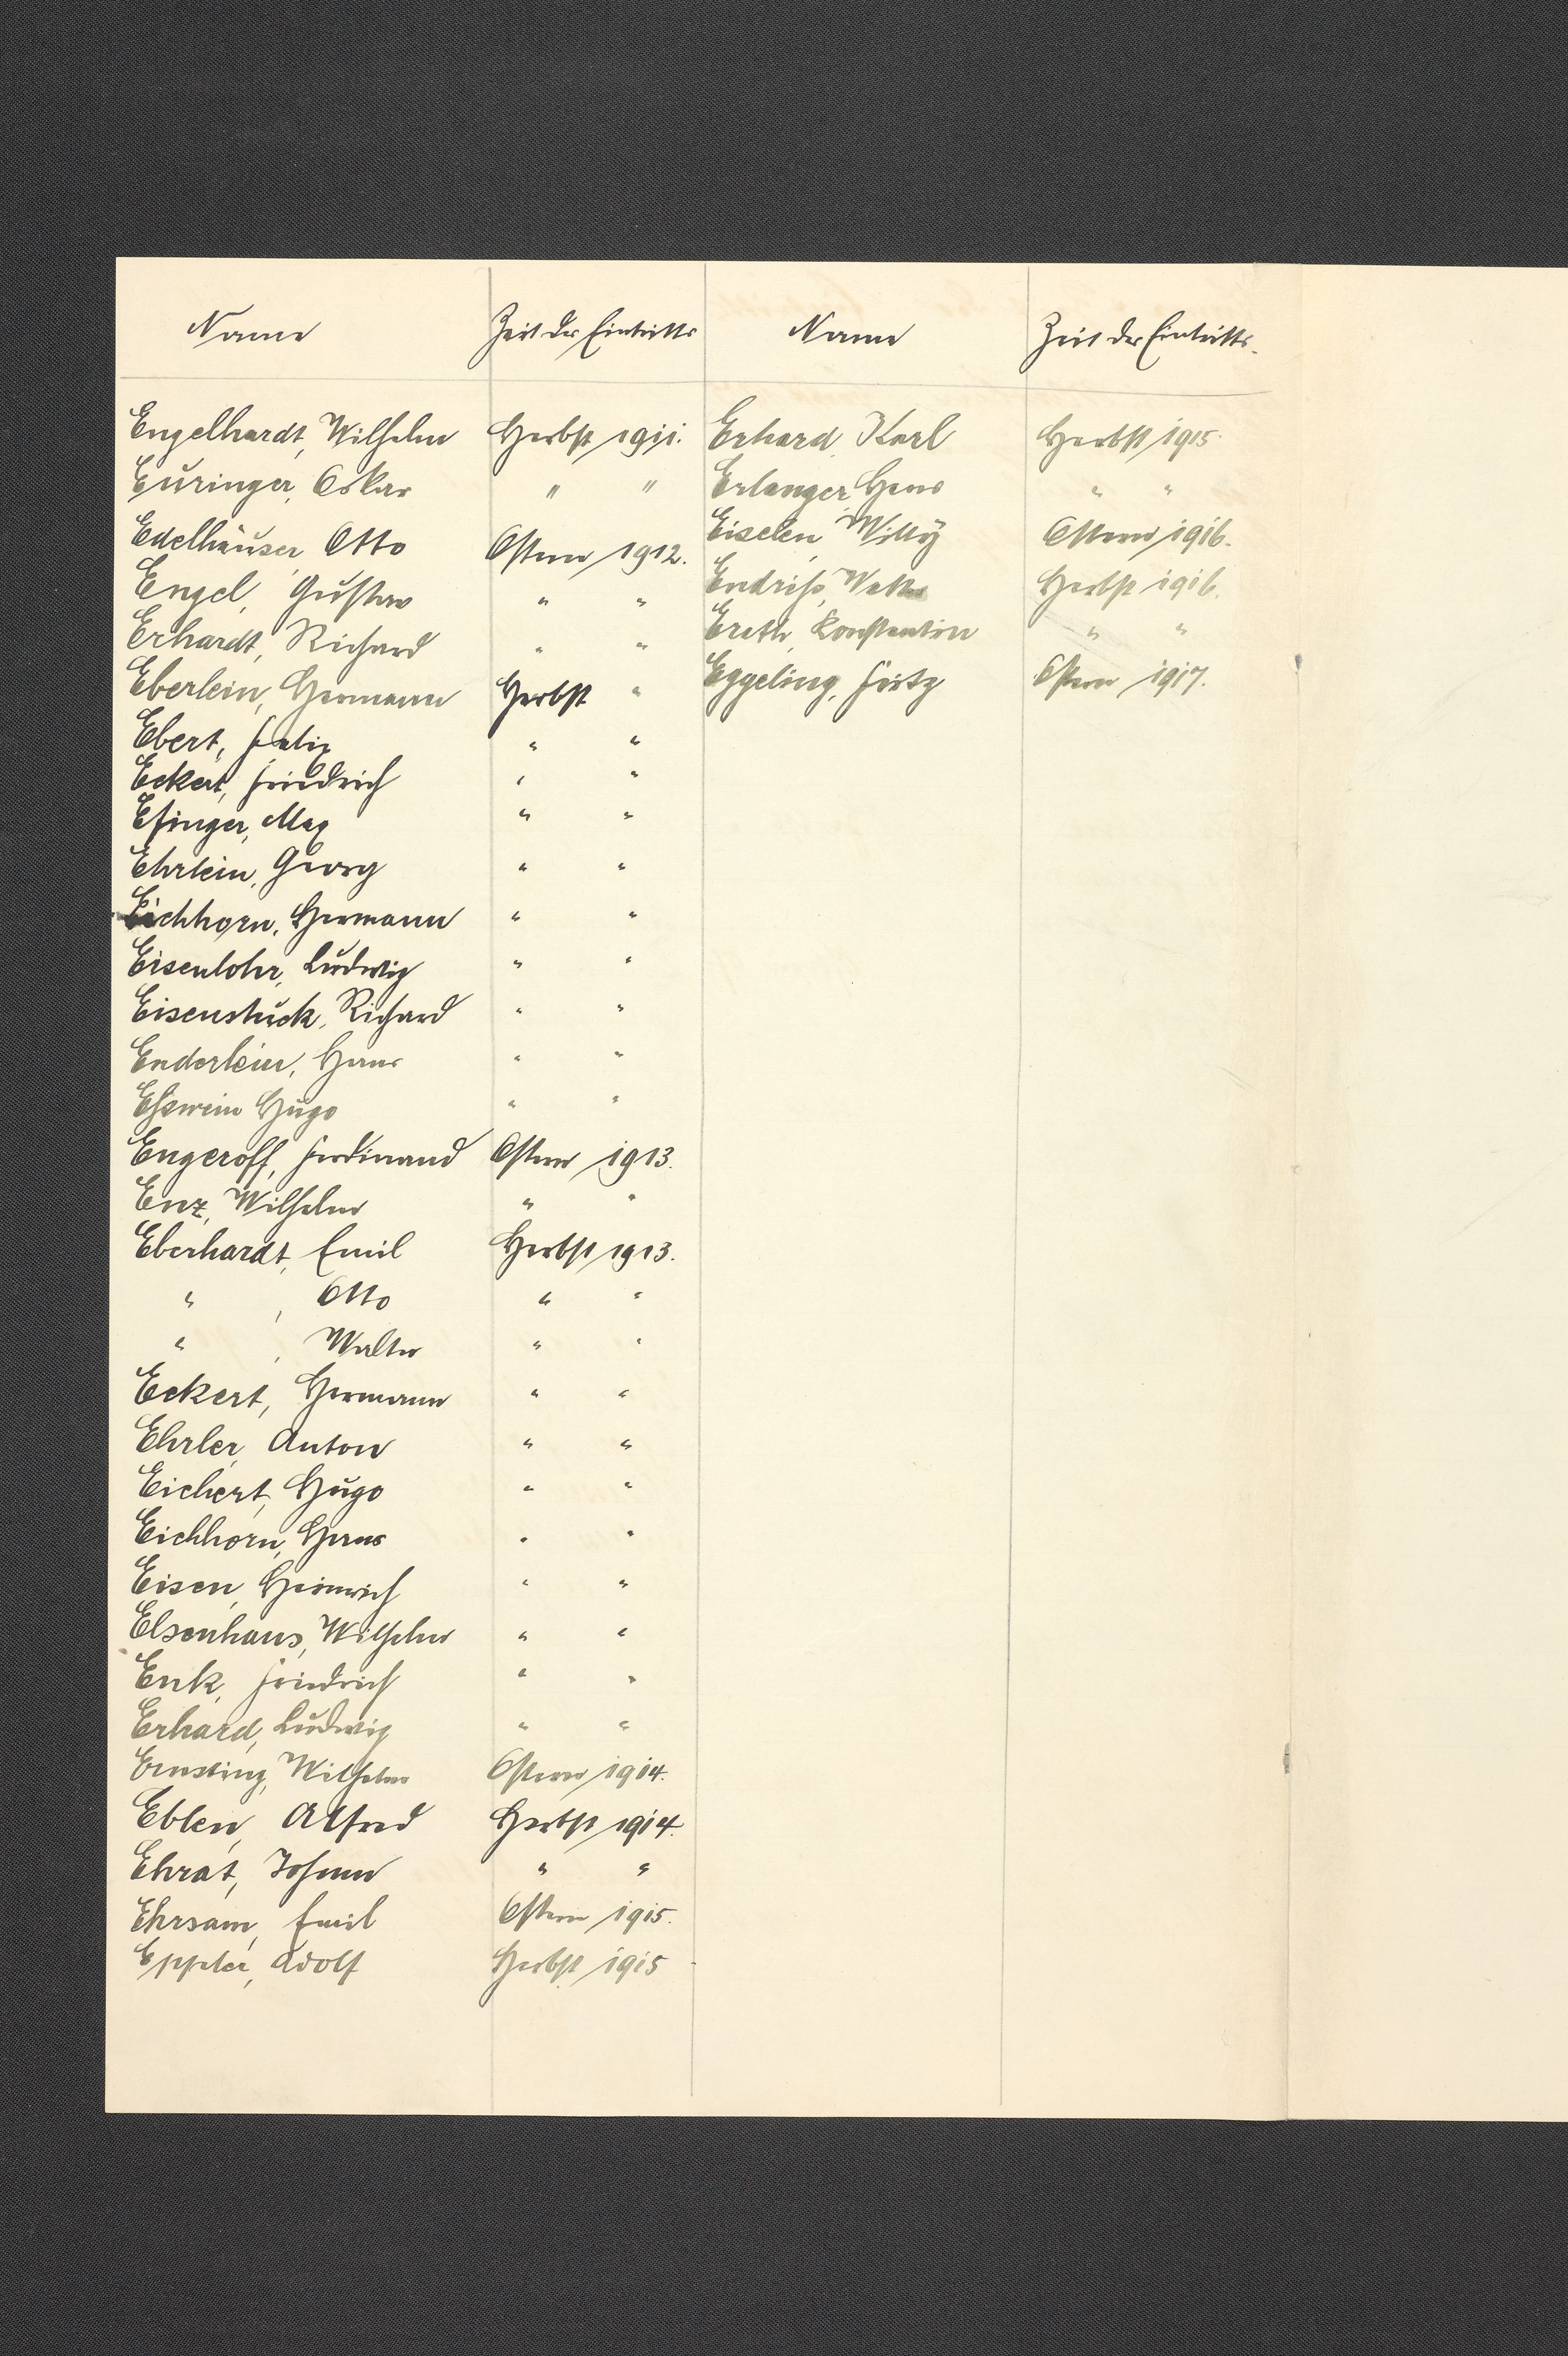 Name Zeit des Eintritts Name Zeit des Eintritts.
Engelhardt, Wilhelm Herbst 1911. Erhard, Karl Herbst 1915.
Euringer, Oskar " " Erlanger, Hans " "
Edelhäuser, Otto Ostern 1912. Eiselen, Willy Ostern 1916.
Engel, Gustav " " Endriß, Walter Herbst 1916.
Erhardt, Richard " " Ereth, Konstantin " "
Eberlein, Hermann Herbst " Eggeling, Fritz Ostern 1917.
Ebert, Felix " "
Eckert, Friedrich " "
Efinger, Max " "
Ehrlein, Georg " "
Eichhorn, Hermann " "
Eisenlohr, Ludwig " "
Eisenstuck, Richard " "
Enderlein, Hans " "
Eßwein Hugo " "
Engeroff, Ferdinand Ostern 1913.
Enz, Wilhelm " "
Eberhardt, Emil Herbst 1913.
" , Otto " "
" , Walter " "
Eckert, Hermann " "
Ehrler, Anton " "
Eichert, Hugo " "
Eichhorn, Hans " "
Eisen, Heinrich " "
Elsenhans, Wilhelm " "
Enk, Friedrich " "
Erhard, Ludwig " "
Ernsting, Wilhelm Ostern 1914.
Eblen, Alfred Herbst 1914.
Ehrat, Johann " "
Ehrsam, Emil Ostern 1915.
Eppler, Adolf Herbst 1915